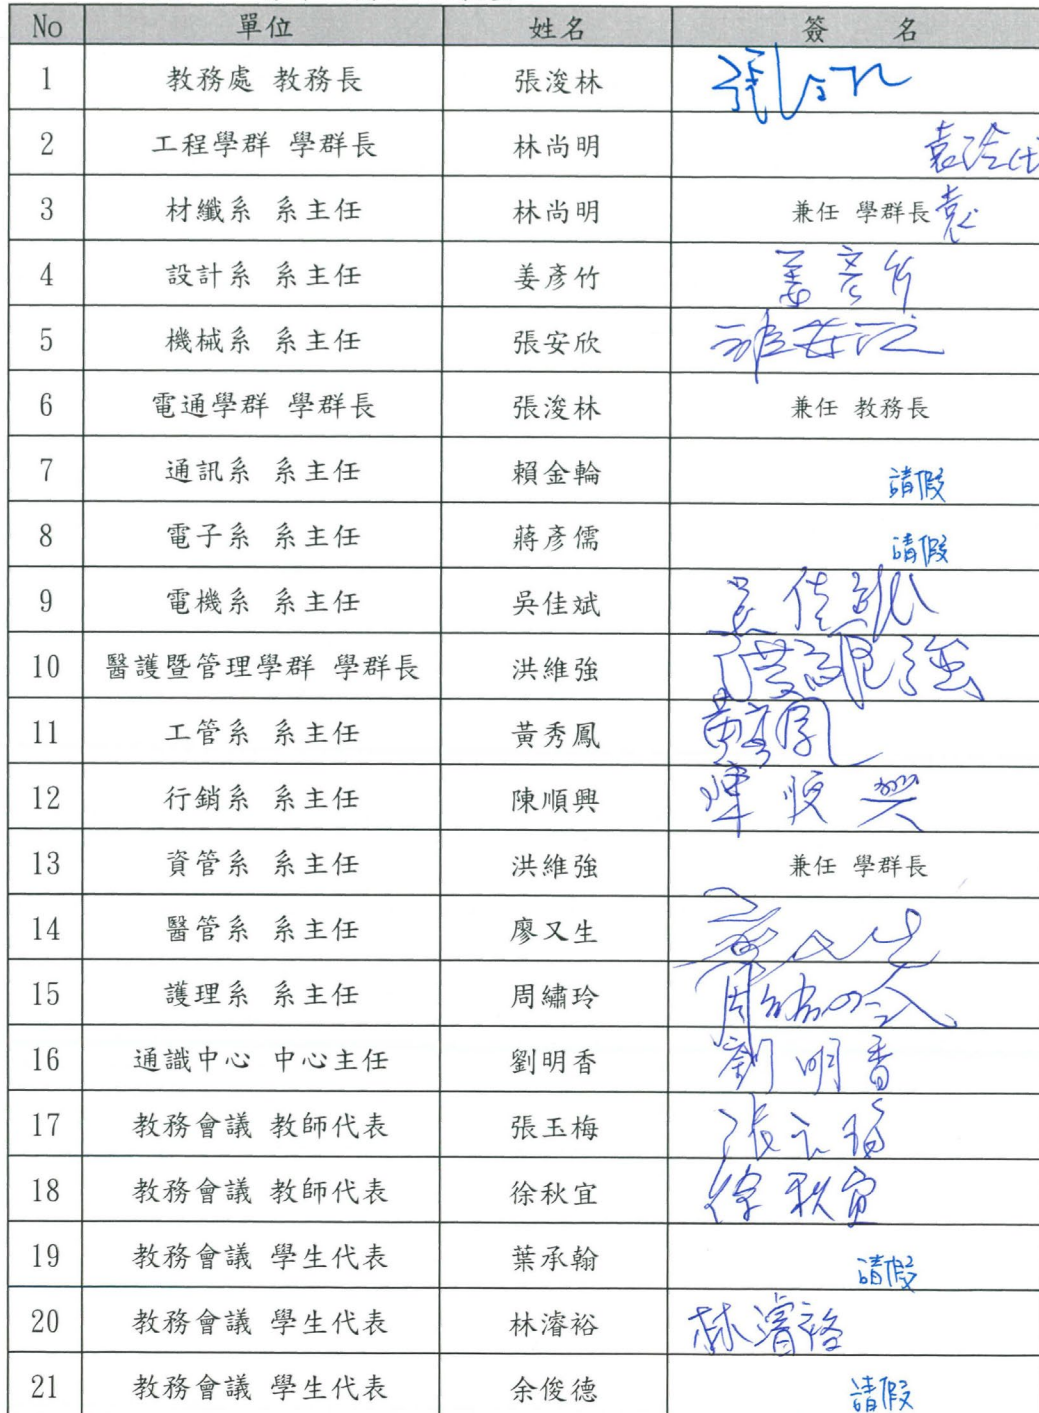 No 單位 姓名 簽 名
1 教務處 教務長 張浚林
2 工程學群 學群長 林尚明
3 材纖系 系主任 林尚明 兼任 學群長 袁
4 設計系 系主任 姜彥竹 姜彥竹
5 機械系 系主任 張安欣 張安欣
6 電通學群 學群長 張浚林 兼任 教務長
7 通訊系 系主任 賴金輪 請假
8 電子系 系主任 蔣彥儒 請假
9 電機系 系主任 吳佳斌 吳佳斌
10 醫護暨管理學群 學群長 洪維強 洪維強
11 工管系 系主任 黃秀鳳 黃秀鳳
12 行銷系 系主任 陳順興 陳順興
13 資管系 系主任 洪維強 兼任 學群長
14 醫管系 系主任 廖又生 廖又生
15 護理系 系主任 周繡玲 周繡玲
16 通識中心 中心主任 劉明香 劉明香
17 教務會議 教師代表 張玉梅 張玉梅
18 教務會議 教師代表 徐秋宜 徐秋宜
19 教務會議 學生代表 葉承翰 請假
20 教務會議 學生代表 林濬裕 林濬裕
21 教務會議 學生代表 余俊德 請假